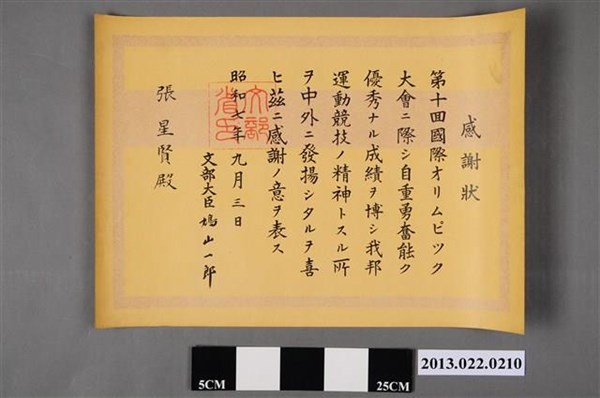 感謝狀
第十回國際オリムピツク
大會ニ際シ自重勇奮能ク
優秀ナル成績ヲ博シ我邦
運動競技ノ精神トスル所
ヲ中外ニ發揚シタルヲ喜
ヒ茲ニ感謝ノ意ヲ表ス
昭和七年九月三日
文部大臣 鳩山一郎
張星賢殿
文部省印
5CM
25CM
2013.022.0210